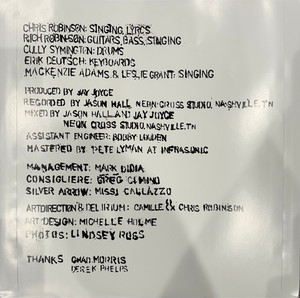 CHRIS ROBINSON: SINGING, LYRICS
RICH ROBINSON: GUITARS, BASS, SINGING
CULLY SYMINGTON: DRUMS
ERIK DEUTSCH: KEYBOARDS
MACKENZIE ADAMS & LESLIE GRANT: SINGING
PRODUCED BY JAY JOYCE
RECORDED BY JASON HALL NEON CROSS STUDIO, NASHVILLE, TN
MIXED BY JASON HALL AND JAY JOYCE
NEON CROSS STUDIO, NASHVILLE, TN
ASSISTANT ENGINEER: BOBBY LOUDEN
MASTERED BY PETE LYMAN AT INFRASONIC
MANAGEMENT: MARK DIDIA
CONSIGLIERE: GREG CIMINO
SILVER ARROW: MISSI CALLAZZO
ART DIRECTION & DELIRIUM: CAMILLE & CHRIS ROBINSON
ART DESIGN: MICHELLE HOLME
PHOTOS: LINDSEY ROSS
THANKS CHAD MORRIS
DEREK PHELPS